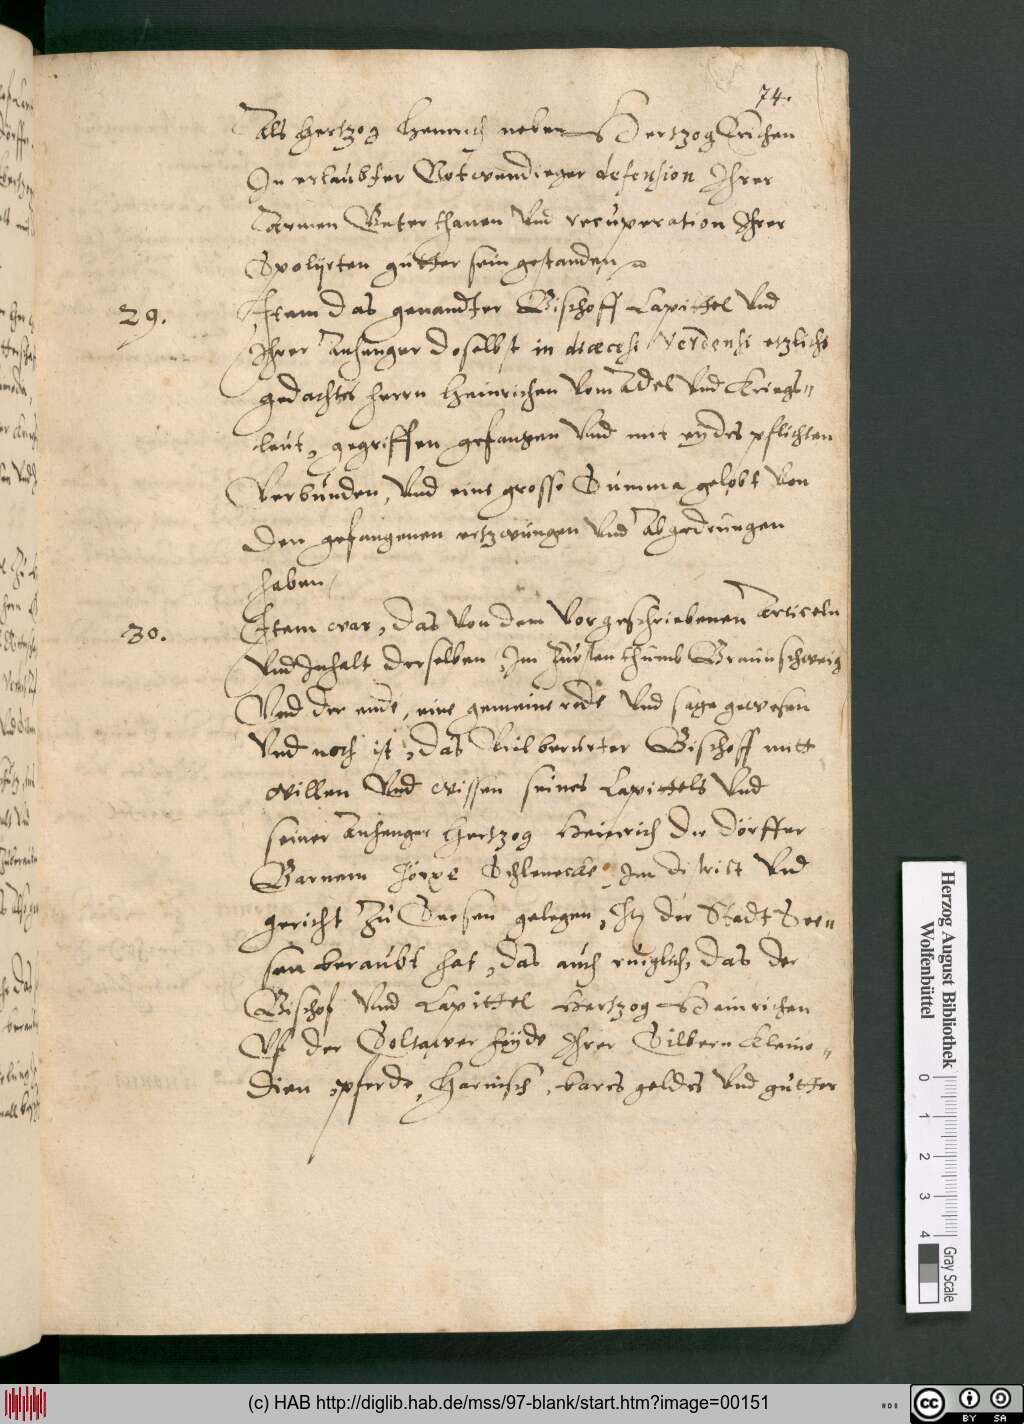 74.
Als Hertzog Heinrich neben Hertzog Erichen
In erlaubter Notwendieger defension Ihrer
Armen Unterthanen Und recuperation Ihrer
Spolijrten gütter sein gestanden
29. Item das genandter Bischoff Capittel Und
Ihrer Anhenger doselbst in diæcesi Verdensi etzliche
gedachtes herrn Heinrichen Vom Adel Und Kriegs=
leut, gegriffen gefangen Und mit eydes pflichten
Verbunden, Und eine grosse Summa gelobt Von
Den gefangenen ertzwungen Und Abgedrungen
haben
30. Item war, das Von dem Vorgeschriebenen Articeln
Und Inhalt derselben, Im Fürstenthumb Braunschweig
Und der ende, eine gemeine rede Und sage gewesen
Und noch ist, das Vielberürter Bischoff mitt
willen Und wissen seines Capittels Und
seiner Anhenger Hertzog Heinrich die dörffer
Barnem Schlenecke, Im district Und
gericht Zu Seesen gelegen, der Stadt See=
sen beraubt hat, das auch das der
Bischof Und Capittel Hertzog Heinrichen
Uf der Soltawer Ihrer Silbern Kleino=
dien, pferde, Harnisch, bares geldes Und gütter
Herzog August Bibliothek
Wolfenbüttel
0 1 2 3 4
Gray Scale
(c) HAB http://diglib.hab.de/mss/97-blank/start.htm?image=00151
cc BY SA